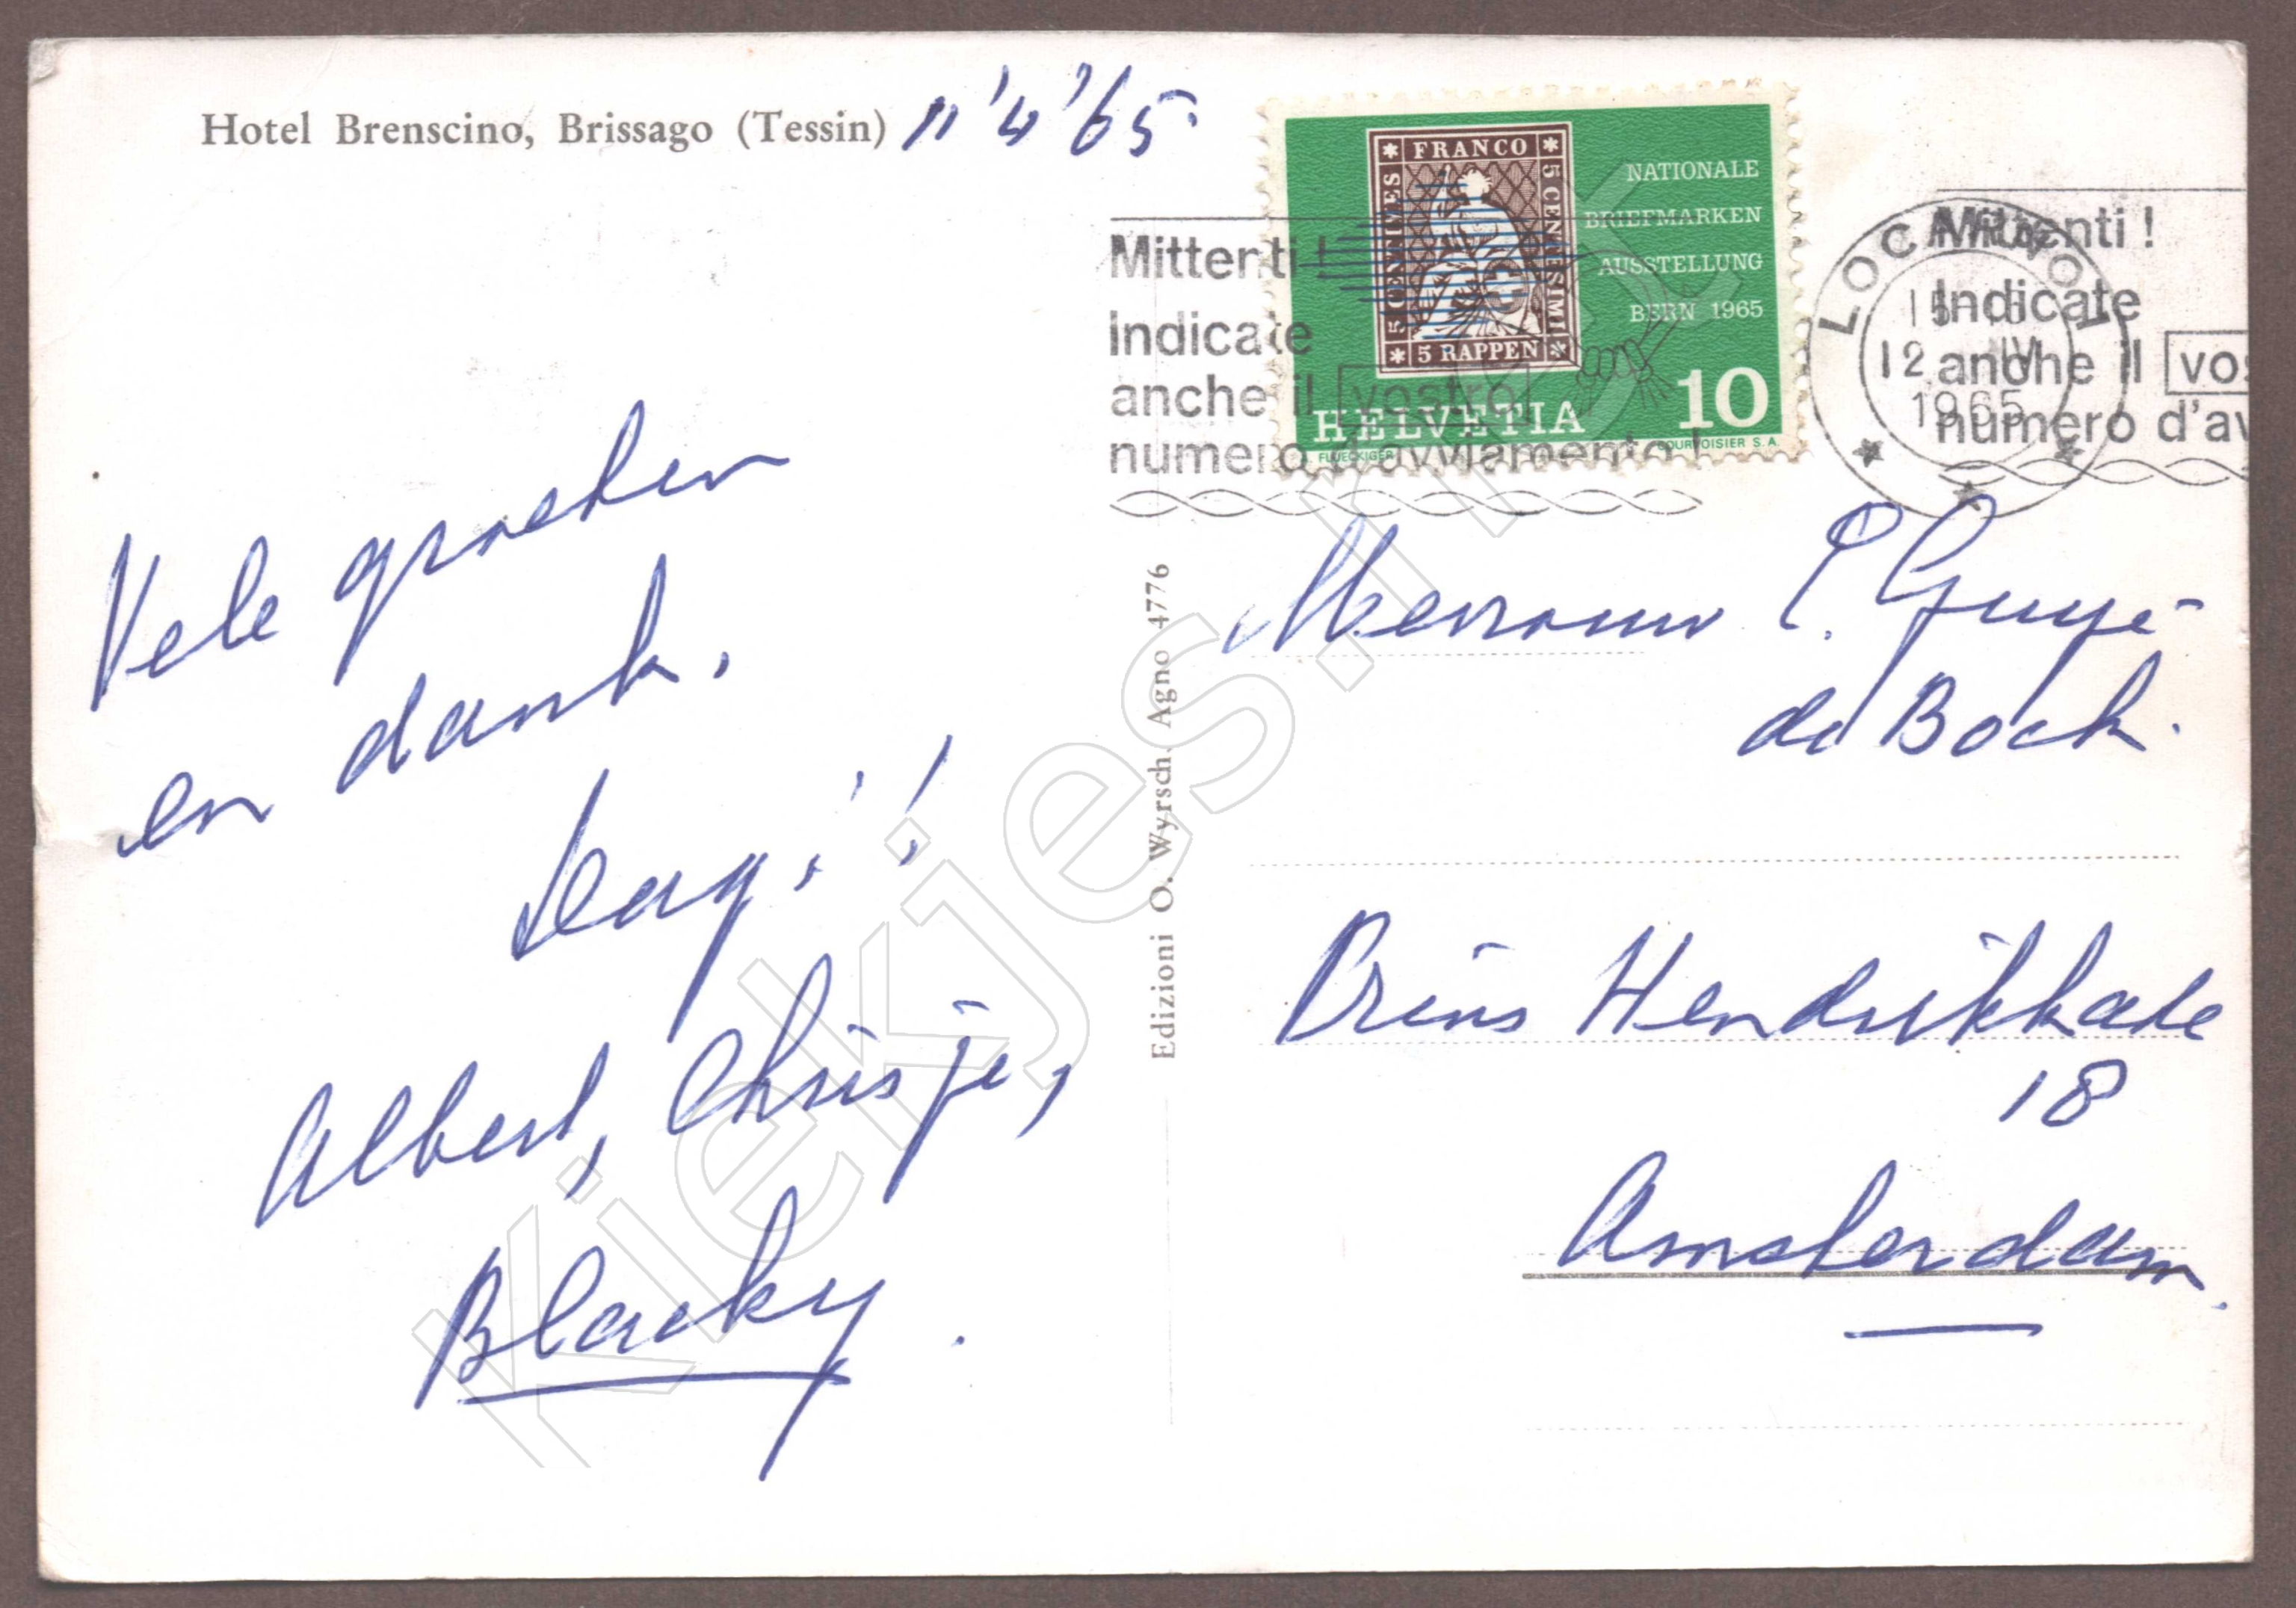 Hotel Brenscino, Brissago (Tessin) 11 '4 '65
Vele groeten
en dank.
Dag!!
Albert, Chrisje,
Blacky.
Edizioni O. Wyrsch, Agno 4776
FRANCO
5 CENTIMES
5 CENTESIMI
5 RAPPEN
NATIONALE
BRIEFMARKEN
AUSSTELLUNG
BERN 1965
10
HELVETIA
FLUECKIGER
COURVOISIER S.A.
Mittenti !
Indicate
anche il vostro
numero d'avviamento !
LOCARNO 1
12 IV
1965
Mittenti !
Indicate
anche il vos
numero d'av
Mevrouw E. Guyé-
de Bock.
Prins Hendrikkade
18
Amsterdam.
Kiekjes.net